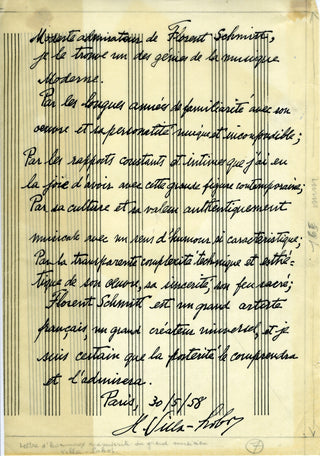 Modeste admirateur de Florent Schmitt,
je le trouve un des génies de la musique
Moderne.
Par les longues années de familiarité avec son
œuvre et sa personalité unique et incorrupsible;
Par les rapports constants et intimes que j'ai eu
la joie d'avoir avec cette grande figure contemporaine;
Par sa culture et sa valeur authentiquement
musicale avec un sens d'humour, si caractéristique;
Par la transparente complexité technique et esthé-
tique de son œuvre, sa sincérité, son feu sacré;
Florent Schmitt est un grand artiste
français, un grand créateur universel, et je
suis certain que la postérité le comprendra
et l'admirera.
Paris, 30/5/58
H. Villa-Lobos